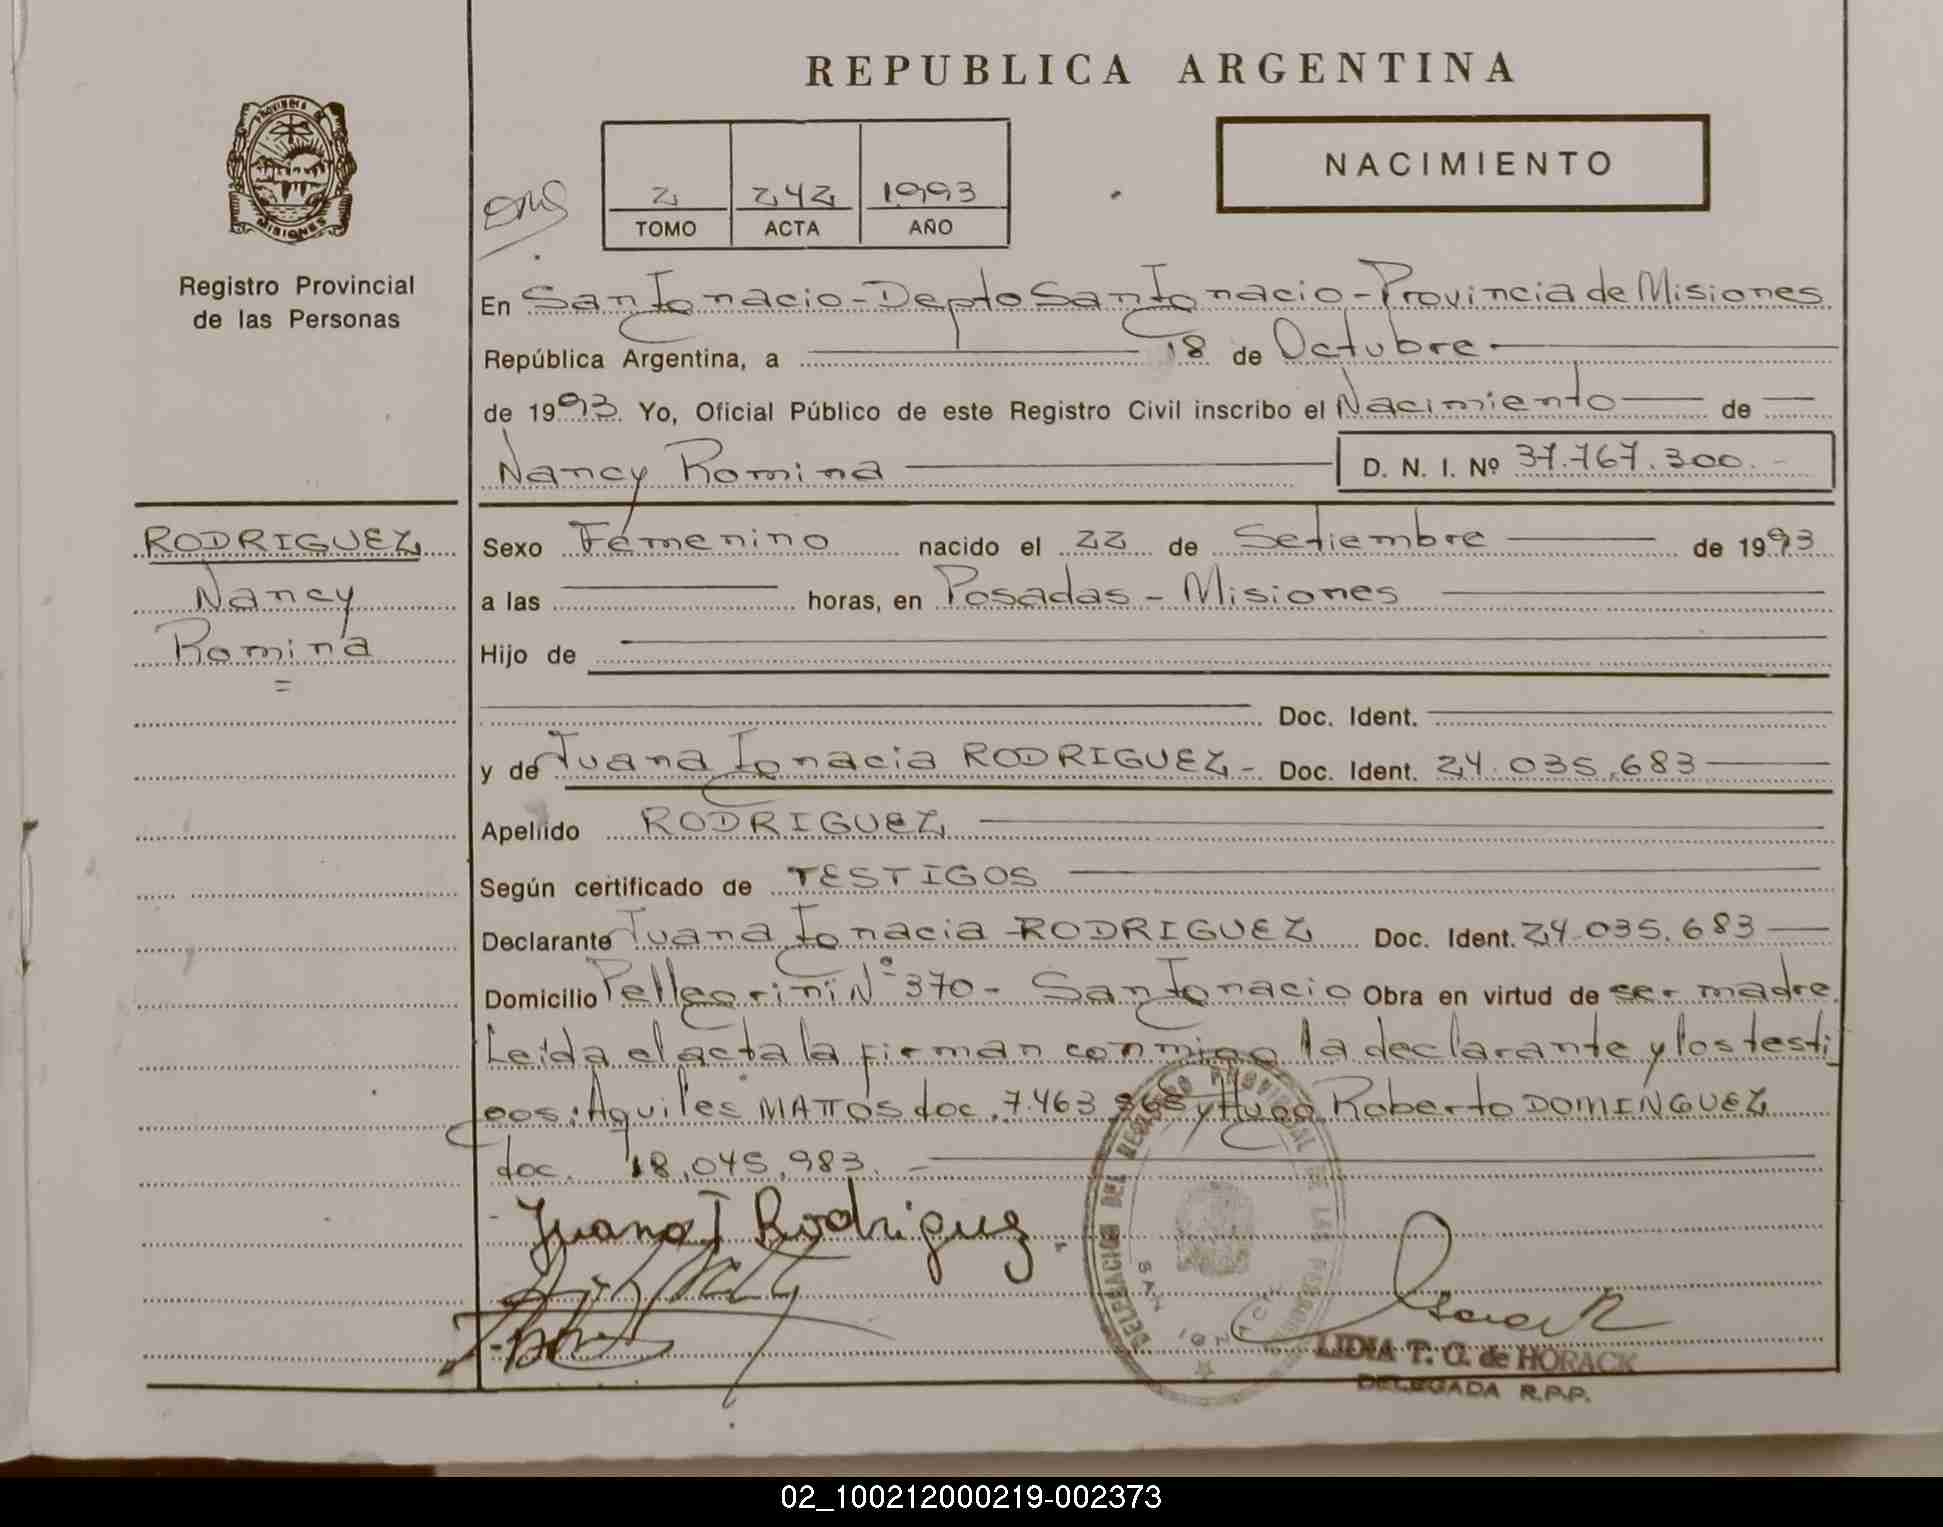 REPUBLICA ARGENTINA
NACIMIENTO
PROVINCIA DE
MISIONES
2 242 1993
TOMO ACTA AÑO
Registro Provincial
de las Personas
En San Ignacio - Depto San Ignacio - Provincia de Misiones
República Argentina, a 18 de Octubre
de 1993. Yo, Oficial Público de este Registro Civil inscribo el Nacimiento de
Nancy Romina D. N. I. Nº 37.767.300.-
RODRIGUEZ
Nancy
Romina
=
Sexo Femenino nacido el 22 de Setiembre de 1993
a las horas, en Posadas - Misiones
Hijo de
Doc. Ident.
y de Juana Ignacia RODRIGUEZ - Doc. Ident. 24.035.683
Apellido RODRIGUEZ
Según certificado de TESTIGOS
Declarante Juana Ignacia RODRIGUEZ Doc. Ident. 24.035.683
Domicilio Pellegrini Nº 370 - San Ignacio Obra en virtud de ser madre.
Leida el acta la firman conmigo la declarante y los testi
gos: Aquiles MATTOS doc. 7.463. y Hugo Roberto DOMINGUEZ
doc. 18.045.983.
Juana I Rodriguez
DELEGACION DEL REGISTRO PROVINCIAL DE LAS PERSONAS
SAN IGNACIO
LIDIA T. G. de HORACK
DELEGADA R.P.P.
02_100212000219-002373